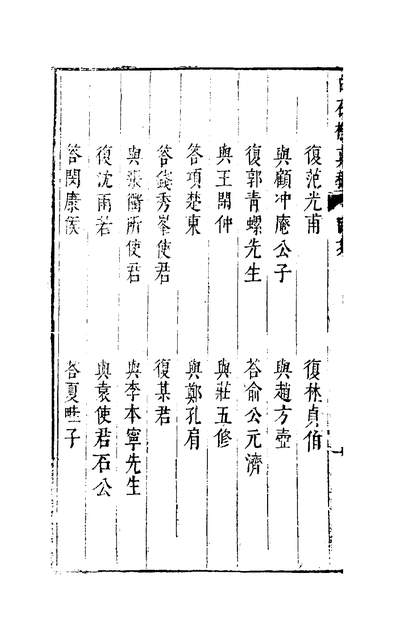 復范光甫
復林貞伯
與顧冲庵公子
與趙方壺
復郭青螺先生
答俞公元濟
與王閑仲
與莊五修
答項楚東
與鄭孔肩
答錢秀峯使君
復某君
與張衡所使君
與李本寧先生
復沈雨若
與袁使君石公
答閔康侯
答夏子